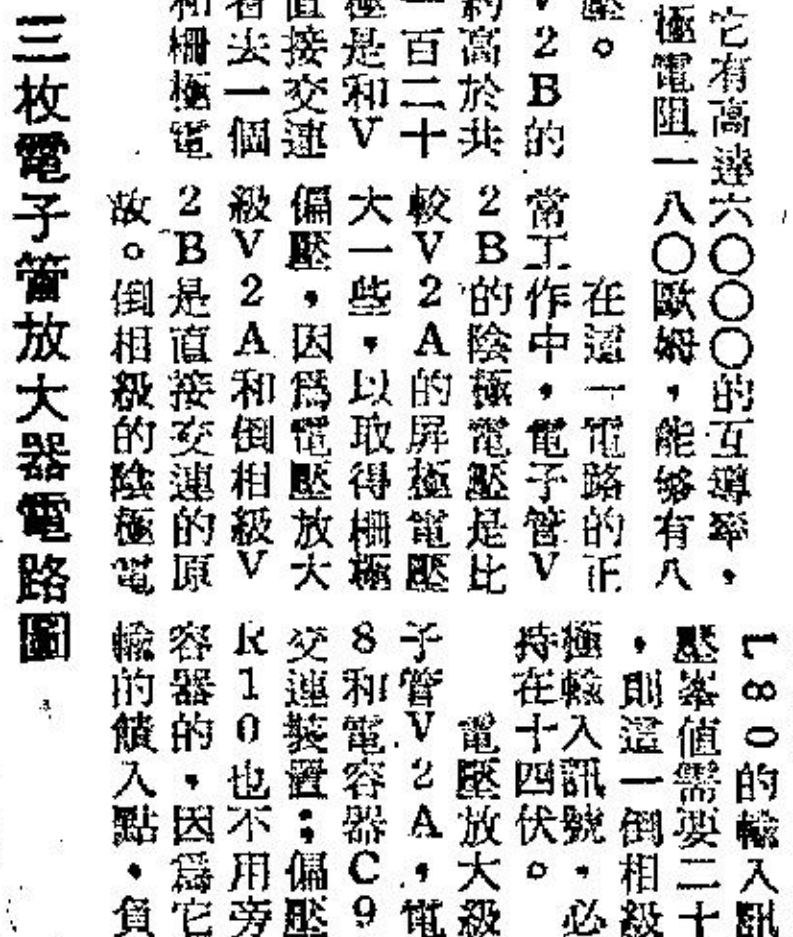 它有高達六〇〇〇的互導率，
極電阻一八〇歐姆，能够有八
壓。
V2B的
約高於共
一百二十
極是和V
直接交連
看去一個
和柵極電
在這一電路的正
當工作中，電子管V
2B的陰極電壓是比
較V2A的屏極電壓
大一些，以取得柵極
偏壓，因爲電壓放大
級V2A和倒相級V
2B是直接交連的原
故。倒相級的陰極電
L80的輸入訊
壓峯值需要二十
，則這一倒相級
極輸入訊號，必
持在十四伏。
電壓放大級
子管V2A，電
8和電容器C9
交連裝置；偏壓
R10也不用旁
容器的，因爲它
輸的饋入點，負
三枚電子管放大器電路圖